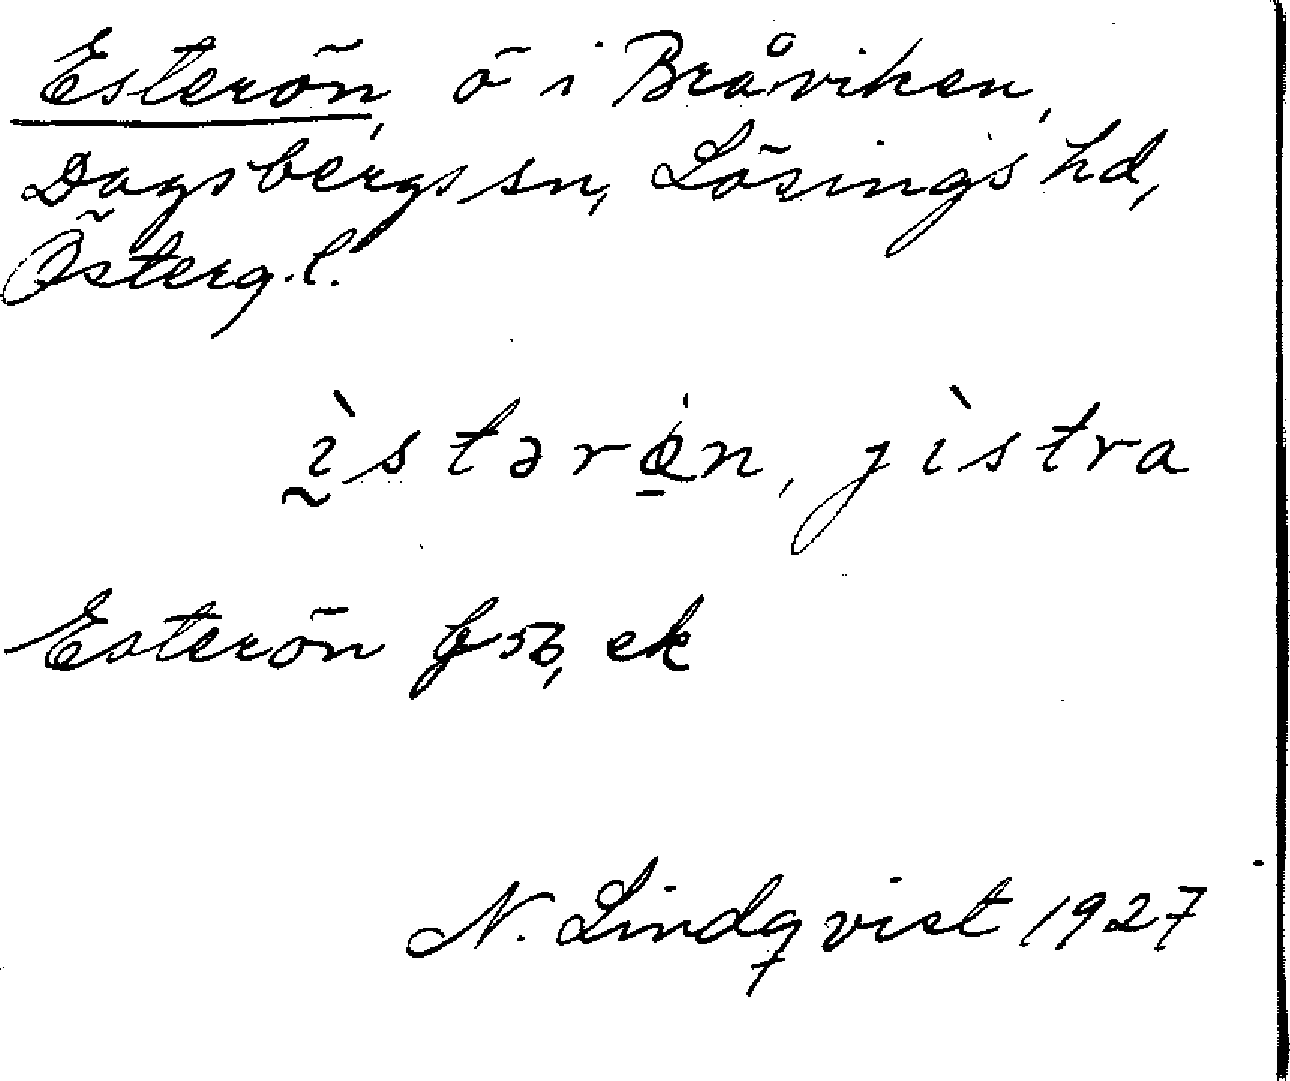 Esterön, ö i Bråviken,
Dagsbergs sn, Lösings hd,
Österg.l.
ìstərøn, jìstra
Esterön GSB, ek
N. Lindqvist 1927